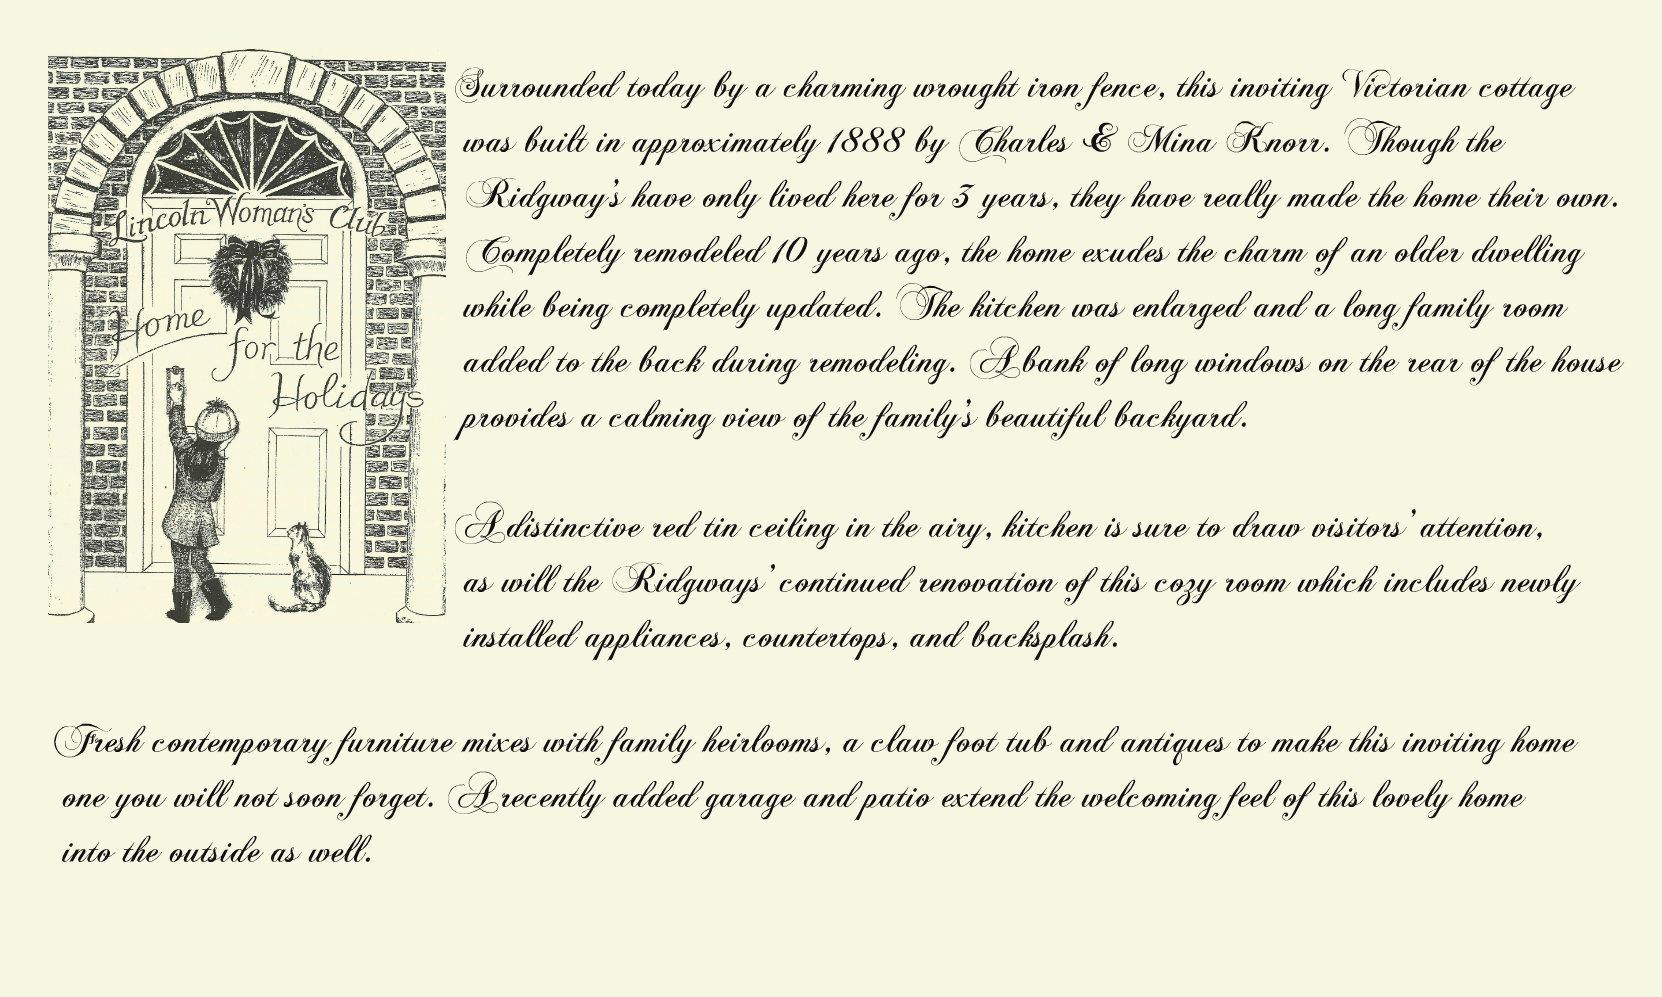 Lincoln Woman's Club
Home
for the
Holidays
Surrounded today by a charming wrought iron fence, this inviting Victorian cottage
was built in approximately 1888 by Charles & Mina Knorr. Though the
Ridgway's have only lived here for 3 years, they have really made the home their own.
Completely remodeled 10 years ago, the home exudes the charm of an older dwelling
while being completely updated. The kitchen was enlarged and a long family room
added to the back during remodeling. A bank of long windows on the rear of the house
provides a calming view of the family's beautiful backyard.
A distinctive red tin ceiling in the airy, kitchen is sure to draw visitors' attention,
as will the Ridgways' continued renovation of this cozy room which includes newly
installed appliances, countertops, and backsplash.
Fresh contemporary furniture mixes with family heirlooms, a claw foot tub and antiques to make this inviting home
one you will not soon forget. A recently added garage and patio extend the welcoming feel of this lovely home
into the outside as well.